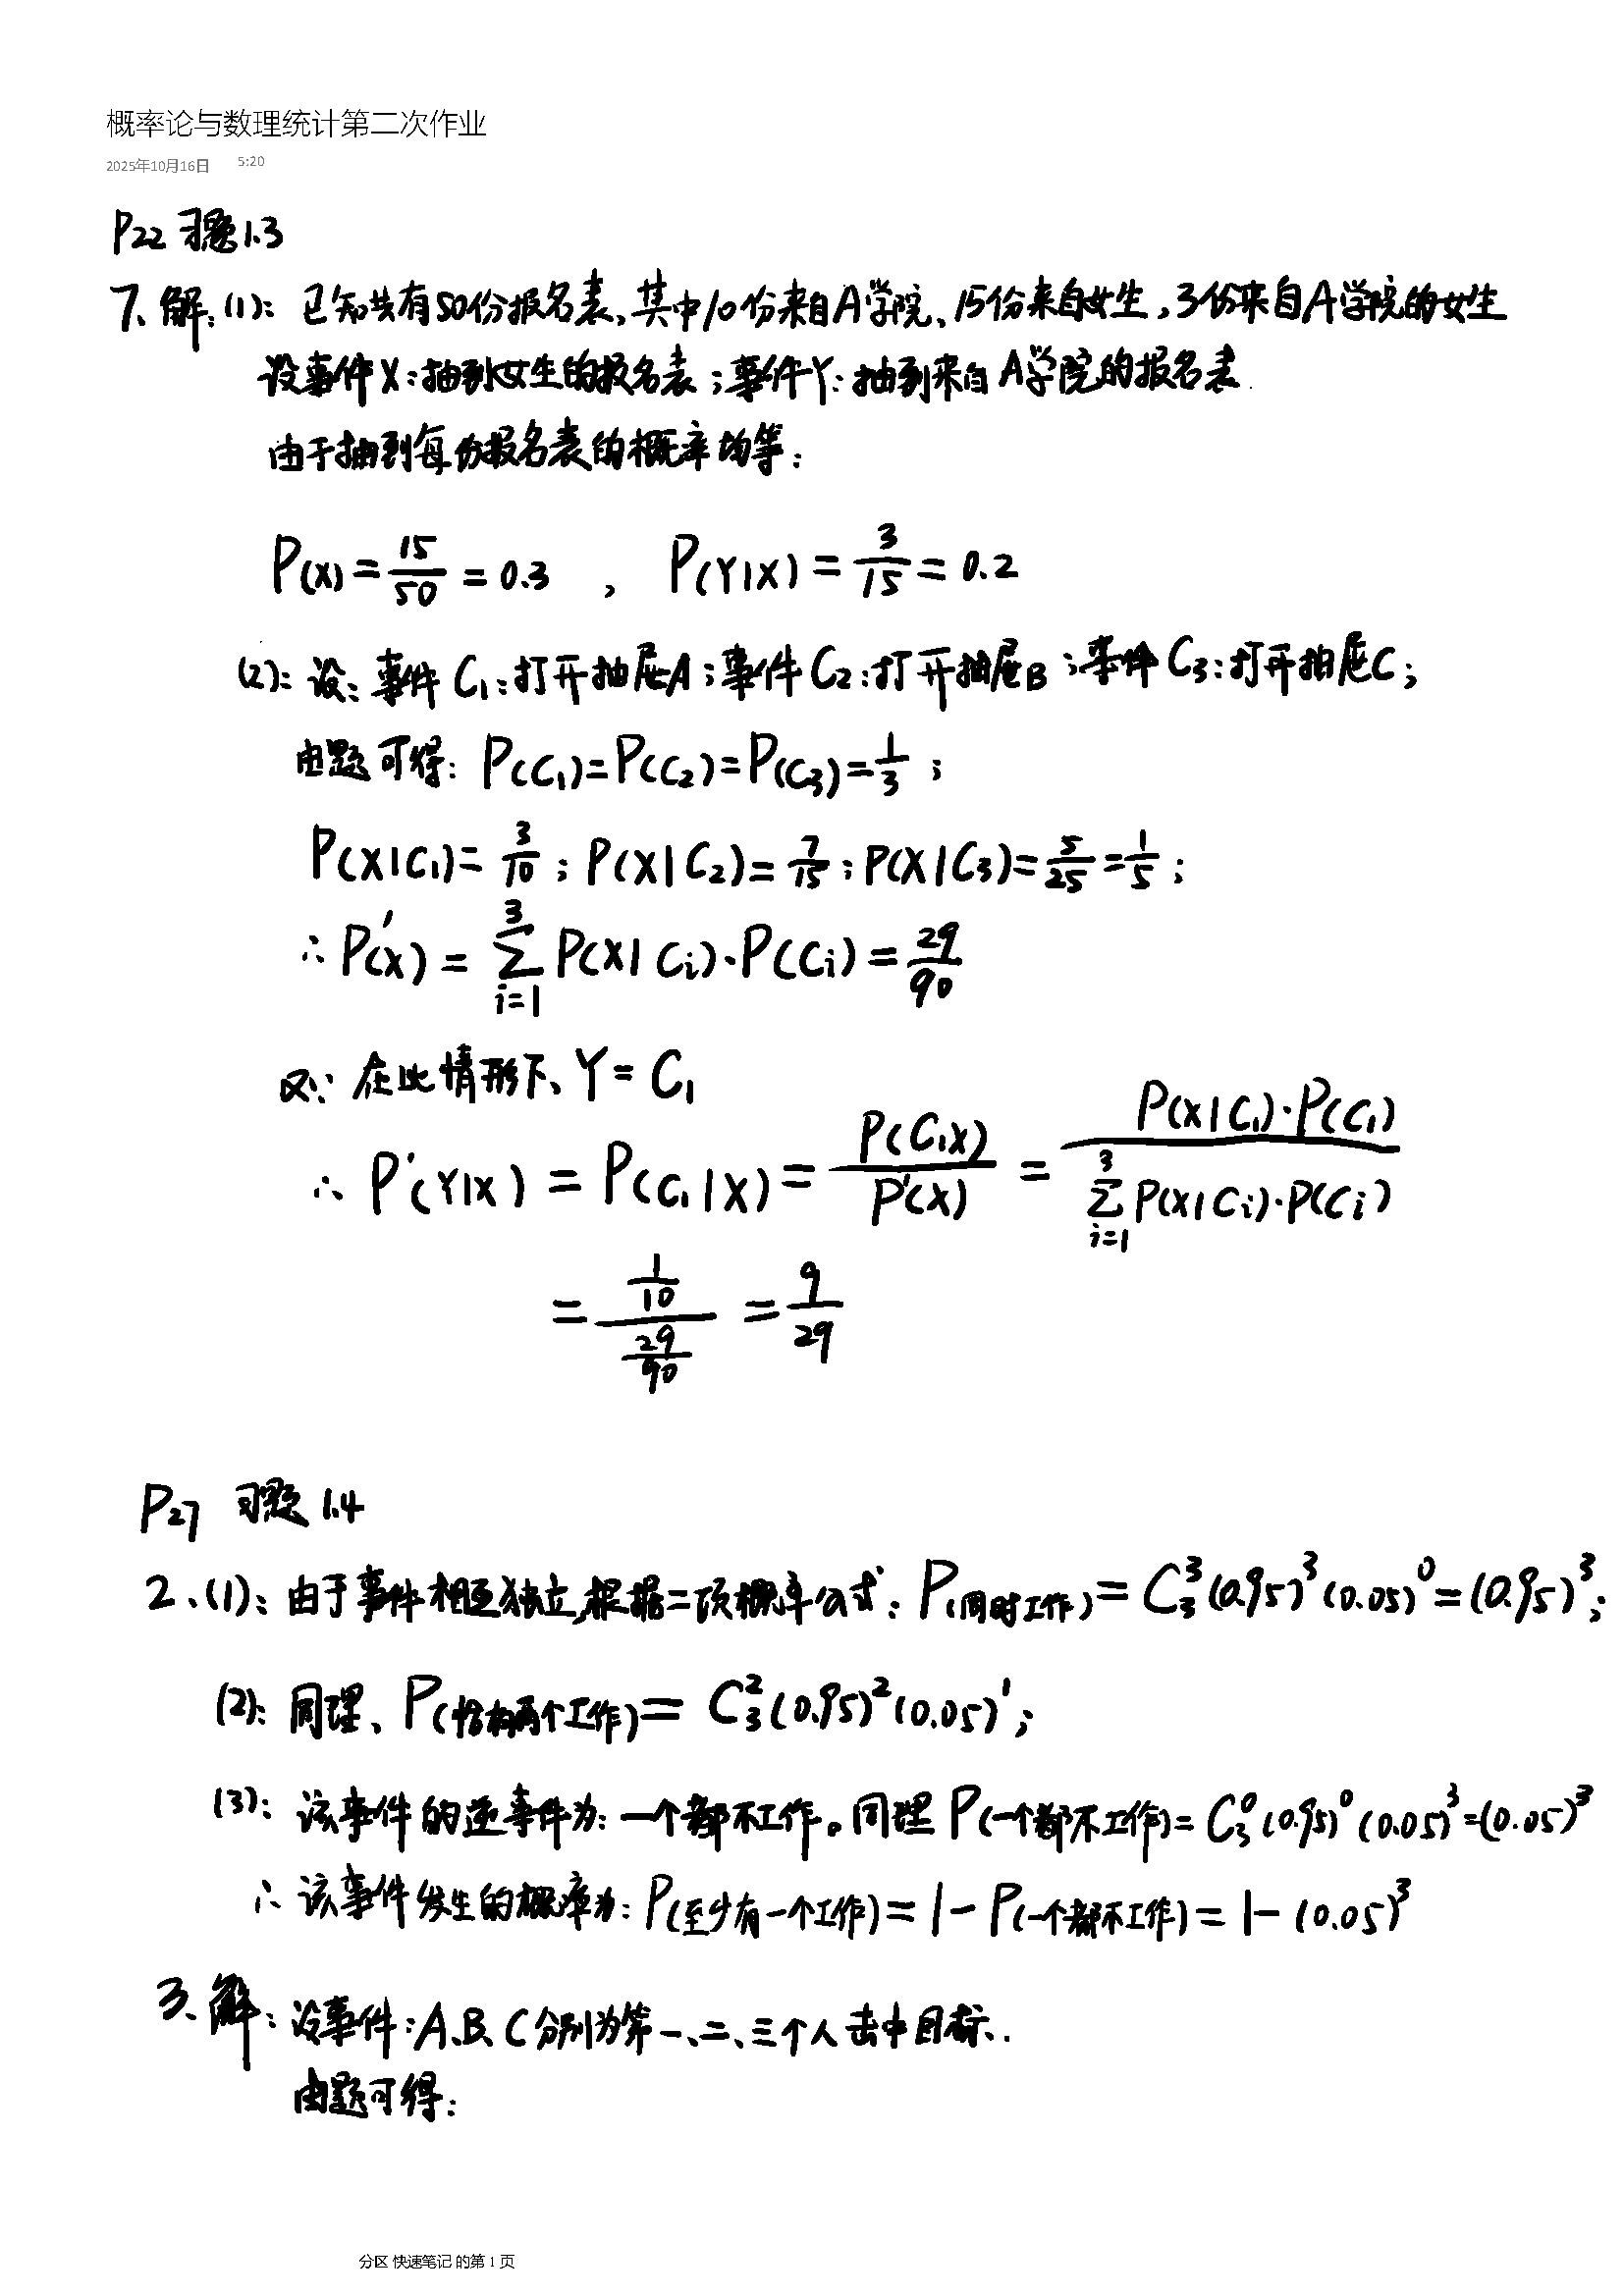 概率论与数理统计第二次作业
2025年10月16日 5:20
P22 习题1.3
7、解:(1): 已知共有50份报名表、其中10份来自A学院、15份来自女生,3份来自A学院的女生
设事件X:抽到女生的报名表;事件Y:抽到来自A学院的报名表.
由于抽到每份报名表的概率均等:
P(X)=15/50=0.3 , P(Y|X)=3/15=0.2
(2): 设:事件C₁:打开抽屉A;事件C₂:打开抽屉B;事件C₃:打开抽屉C;
由题可得: P(C₁)=P(C₂)=P(C₃)=1/3;
P(X|C₁)=3/10; P(X|C₂)=7/15; P(X|C₃)=5/25=1/5;
∴ P'(X)=∑_{i=1}^{3} P(X|Cᵢ)·P(Cᵢ)=29/90
又∵ 在此情形下、Y=C₁
∴ P'(Y|X)=P(C₁|X)=P(C₁X)/P'(X)=P(X|C₁)·P(C₁)/∑_{i=1}^{3} P(X|Cᵢ)·P(Cᵢ)
=(1/10)/(29/90)=9/29
P27 习题1.4
2、(1): 由于事件相互独立,根据二项概率公式: P(同时工作)=C₃³(0.95)³(0.05)⁰=(0.95)³;
(2): 同理、P(恰有两个工作)=C₃²(0.95)²(0.05)¹;
(3): 该事件的逆事件为:一个都不工作。同理 P(一个都不工作)=C₃⁰(0.95)⁰(0.05)³=(0.05)³
∴ 该事件发生的概率为: P(至少有一个工作)=1-P(一个都不工作)=1-(0.05)³
3、解: 设事件:A、B、C分别为第一、二、三个人击中目标、.
由题可得:
分区 快速笔记 的第 1 页